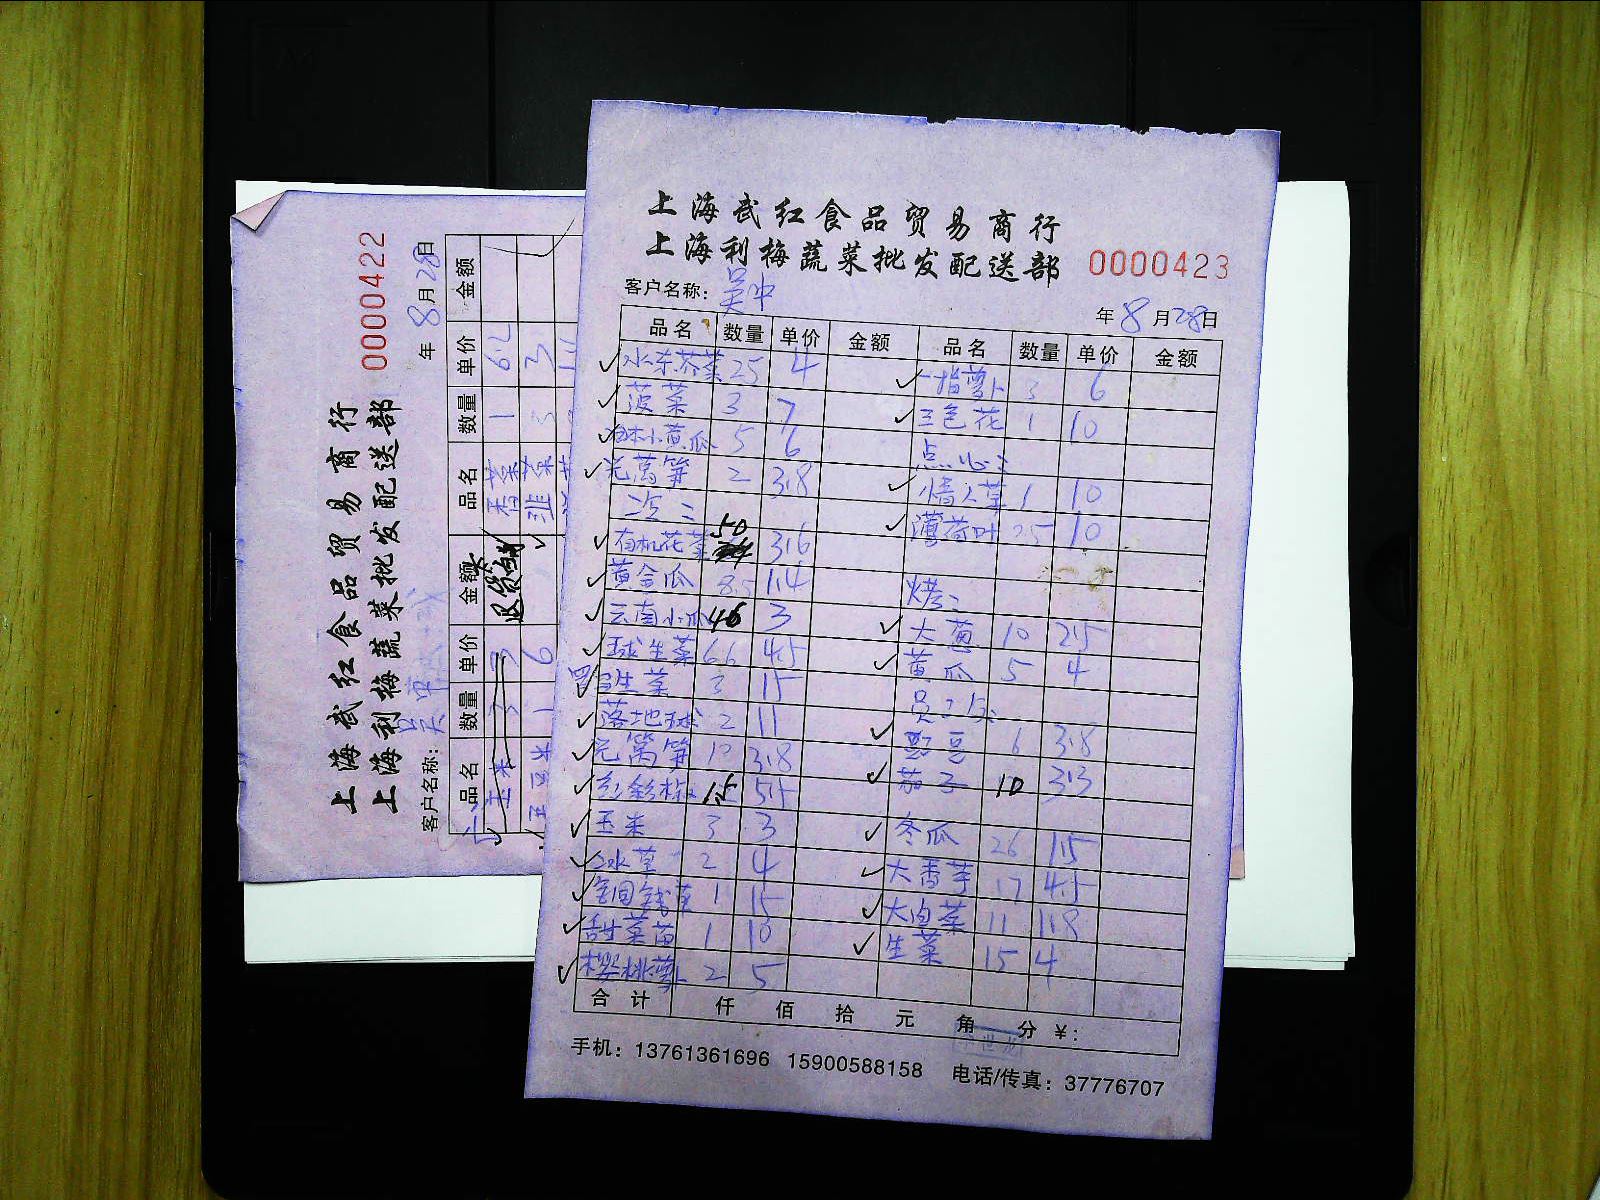 上海武红食品贸易商行
上海利梅蔬菜批发配送部 0000423
客户名称：吴中
年 8 月 28 日
品名 数量 单价 金额 品名 数量 单价 金额
水东芥菜 25 4 一指萝卜 3 6
菠菜 3 7 三色花 1 10
小黄瓜 5 6 点心：
莴笋 2 3.8 情人草 1 10
50
有机花菜 3.6 薄荷叶 2.5 10
黄金瓜 8.5 1.4 烤：
云南小瓜 46 3 大葱 10 2.5
球生菜 66 4.5 黄瓜 5 4
生菜 3 15 员工：
落地球 2 11 豆 6 3.8
莴笋 3.8 茄子 10 3.3
彩椒 1.5 5.5
玉米 3 3 冬瓜 26 1.5
冰草 2 4 大香芋 17 4.5
铜钱草 1 15 大白菜 11 1.8
甜菜苗 1 10 生菜 15 4
樱桃萝卜 2 5
合计 仟 佰 拾 元 角 分 ￥：
手机：13761361696 15900588158 电话/传真：37776707
上海武红食品贸易商行
上海利梅蔬菜批发配送部 0000422
客户名称：吴中
年 8 月 28 日
品名 数量 单价 金额 品名 数量 单价 金额
玉米 3 3 香菜 1 62
豆米 1 6 韭菜 3 3